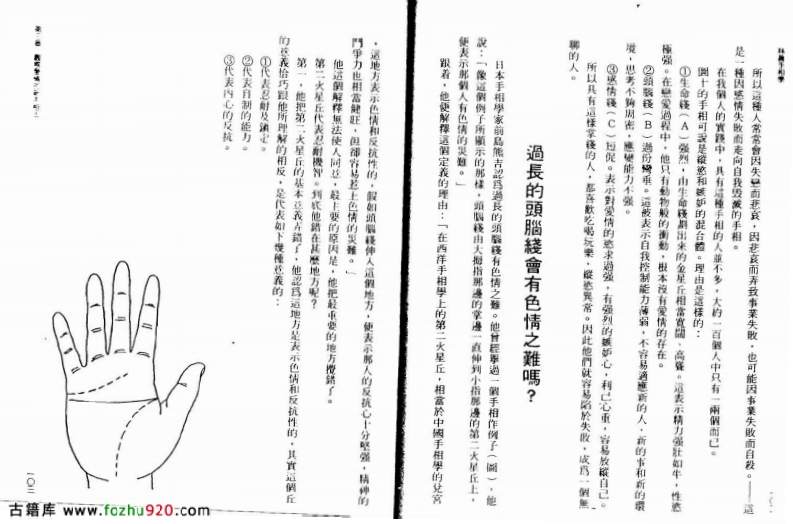 林□手相學
所以這種人常常會因失戀而悲哀，因悲哀而弄致事業失敗，也可能因事業失敗而自殺。——這
是一種因感情失敗而走向自我毀滅的手相。
在我個人的實踐中，具有這種手相的人並不多，大約一百個人中只有一兩個而已。
圖十的手相可說是縱慾和嫉妒的混合體。理由是這樣的：
①生命綫（A）强烈，由生命綫劃出來的金星丘相當寬闊、高聳。這表示精力强壯如牛，性慾
極强。在戀愛過程中，他只有動物般的衝動，根本沒有愛情的存在。
②頭腦綫（B）過份彎垂。這被表示自我控制能力薄弱，不容易適應新的人、新的事和新的環
境，思考不夠周密，應變能力不强。
③感情綫（C）短促。表示對愛情的慾求過强，有强烈的嫉妒心，利己心重，容易放縱自己。
所以具有這樣掌綫的人，都喜歡吃喝玩樂，縱慾異常。因此他們就容易陷於失敗，成爲一個無
聊的人。
過長的頭腦綫會有色情之難嗎？
日本手相學家前島熊吉認爲過長的頭腦綫有色情之難。他曾經舉過一個手相作例子（圖），他
說：「像這個例子所顯示的那樣，頭腦綫由大拇指那邊的掌邊一直伸到小指那邊的第二火星丘上，
便表示那個人有色情的災難。」
跟着，他便解釋這個定義的理由：「在西洋手相學上的第二火星丘，相當於中國手相學的兌宮
，這地方表示色情和反抗性的，假如頭腦綫伸入這個地方，便表示那人的反抗心十分堅强，精神的
鬥爭力也相當健旺，但卻容易惹上色情的災難。」
他這個解釋無法使人同意，最主要的原因是，他把最重要的地方攪錯了。
第二火星丘代表忍耐機智。到底他錯在甚麼地方呢？
第一，他把第二火星丘的基本意義弄錯了，他認爲這地方是表示色情和反抗性的，其實這個丘
的意義恰巧跟他所理解的相反，是代表如下幾種意義的：
①代表忍耐及鎮定。
②代表自制的能力。
③代表內心的反抗。
一〇三
古籍库 www.fozhu920.com